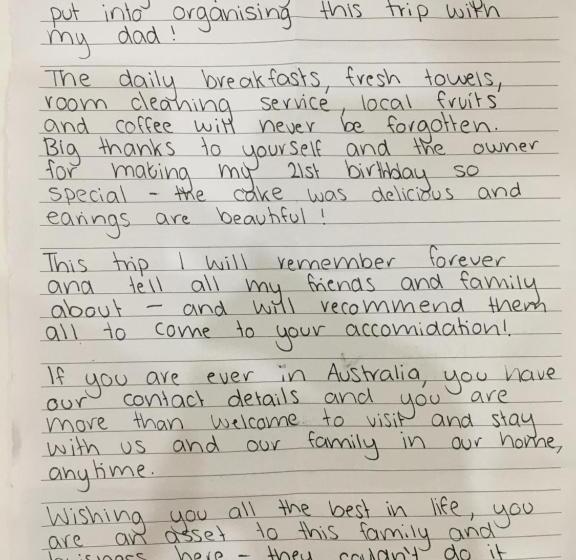 put into organising this trip with
my dad!
The daily breakfasts, fresh towels,
room cleaning service, local fruits
and coffee will never be forgotten.
Big thanks to yourself and the owner
for making my 21st birthday so
special - the cake was delicious and
earings are beautiful!
This trip I will remember forever
and tell all my friends and family
about - and will recommend them
all to come to your accomidation!
If you are ever in Australia, you have
our contact details and you are
more than welcome to visit and stay
with us and our family in our home,
anytime.
Wishing you all the best in life, you
are an asset to this family and
business here - they couldn't do it